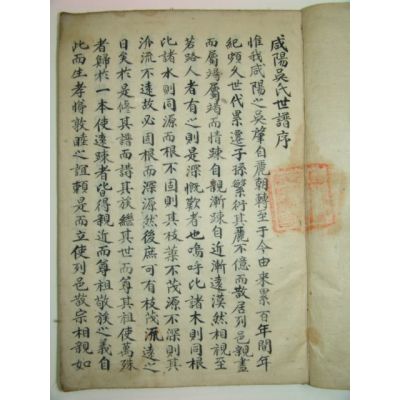 咸陽吳氏世譜序
惟我咸陽之吳肇自麗朝轉至于今由來累百年間年
紀頗久世代累遷子孫繁衍其麗不億而散居列邑親盡
而属竭属竭而情踈自親漸踈自近漸遠漠然相視至
若路人者有之則是深慨歎者也嗚呼比諸木則同根
比諸水則同源而根不固則其枝葉不茂源不深則其
派流不遠故必固根而深源然後庶可有枝茂流遠之
日矣於是修其譜而譜其族継其世而尊其祖使萬殊
者歸於一本使遠踈者皆得親近而尊祖敬族之義自
此而生孝悌敦睦之誼賴是而立使列邑散宗相親如